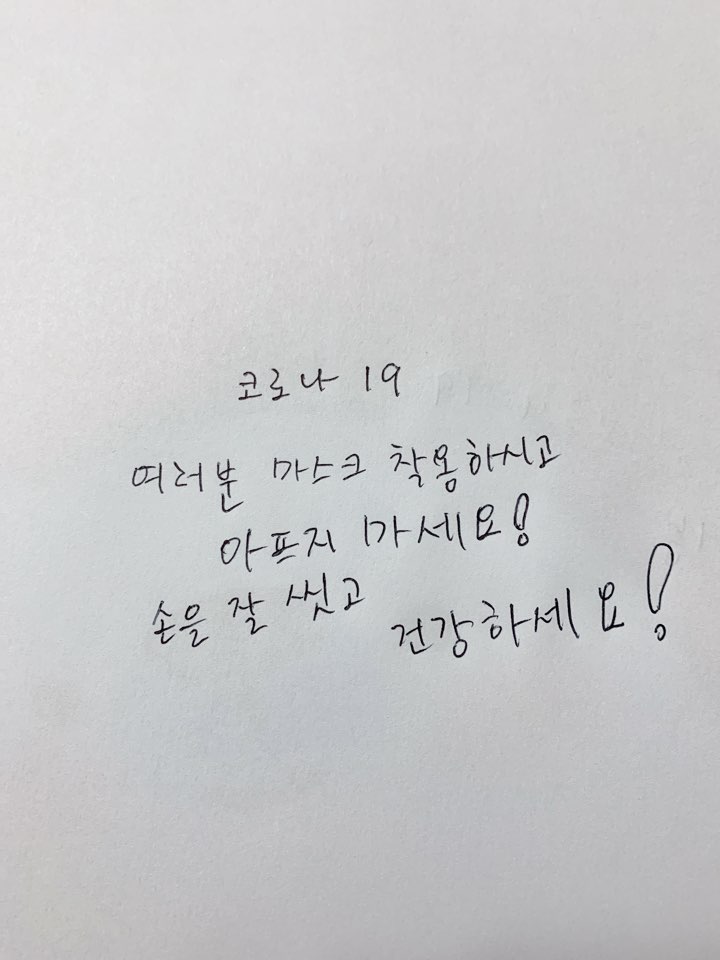 코로나 19
여러분 마스크 착용하시고
아프지 마세요!
손을 잘 씻고
건강하세요!